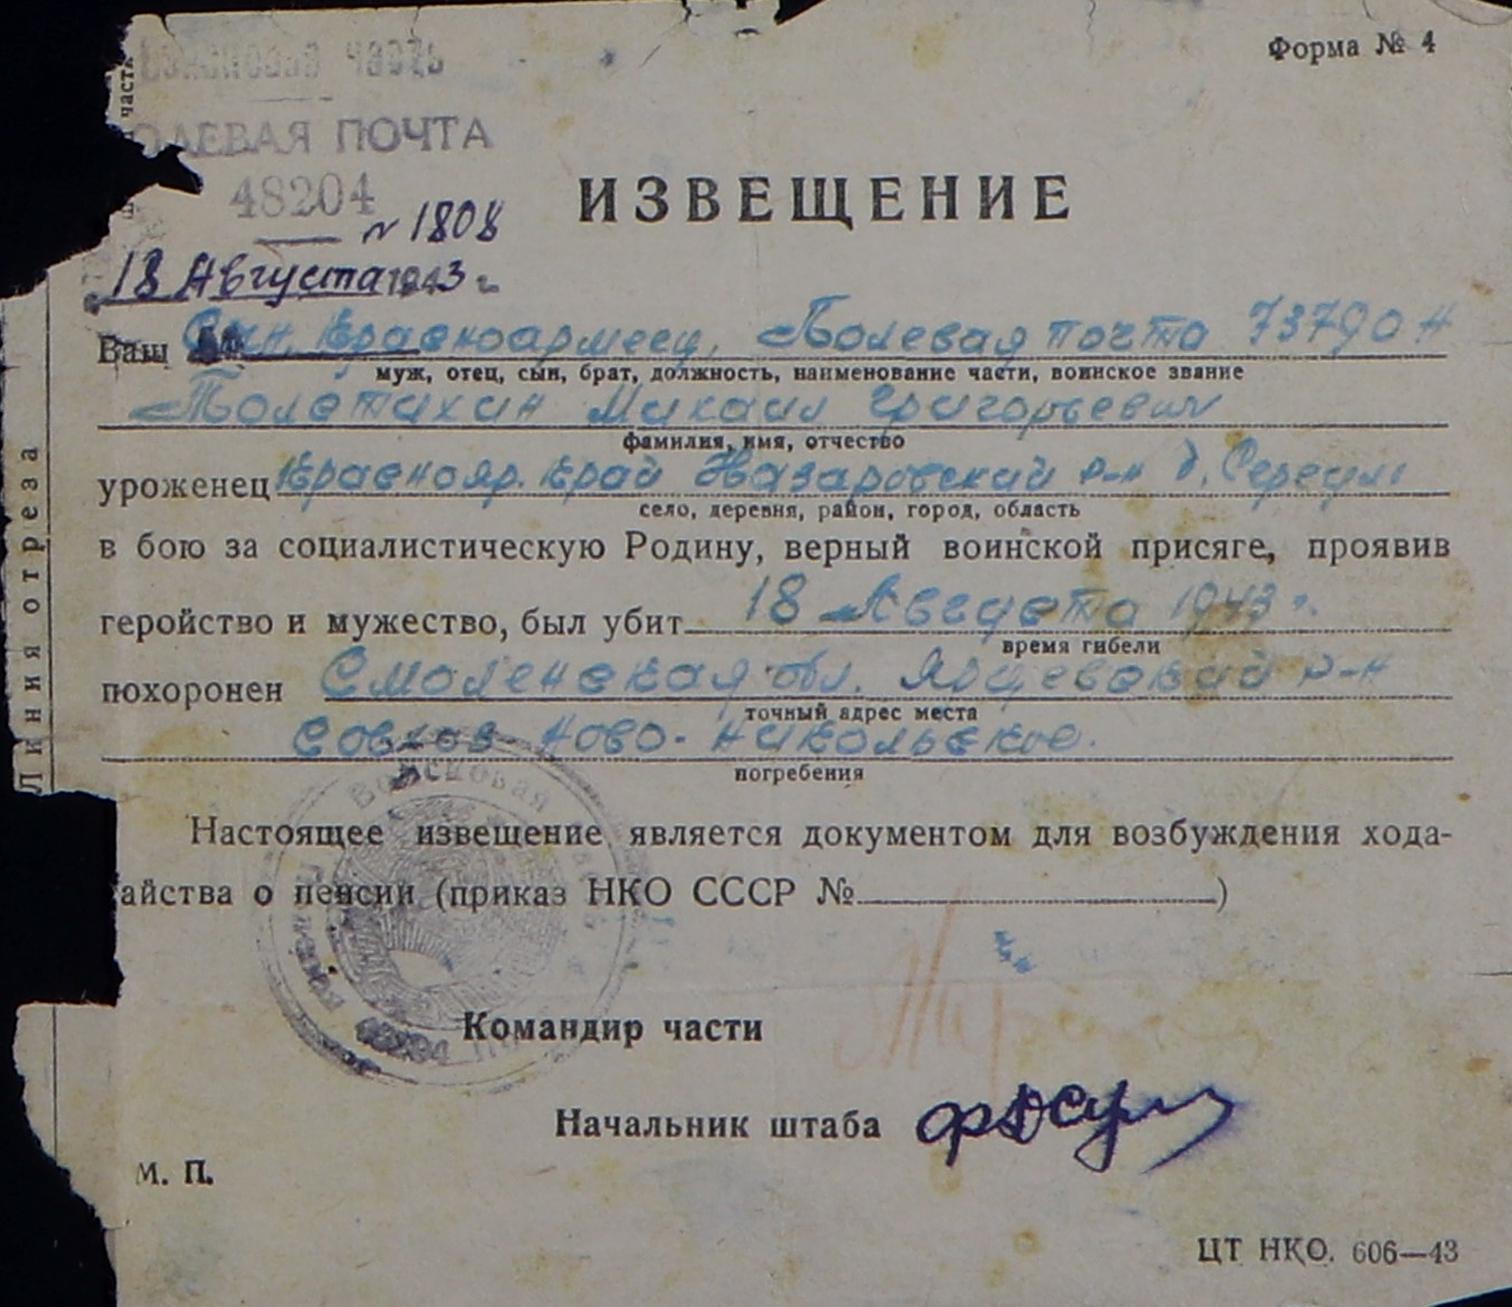 Форма № 4
Войсковая часть
ПОЛЕВАЯ ПОЧТА
48204
N 1808
ИЗВЕЩЕНИЕ
18 Августа 1943 г.
Ваш Сын, Красноармеец, Полевая почта 73790 Н
муж, отец, сын, брат, должность, наименование части, воинское звание
Полетихин Михаил Григорьевич
фамилия, имя, отчество
уроженец Краснояр. край Назаровский р-н д. Сереуль
село, деревня, район, город, область
в бою за социалистическую Родину, верный воинской присяге, проявив
геройство и мужество, был убит 18 Августа 1943 г.
время гибели
похоронен Смоленская обл. Ярцевский р-н
точный адрес места
Совхоз Ново-Никольское.
погребения
Линия отреза
Настоящее извещение является документом для возбуждения хода-
айства о пенсии (приказ НКО СССР № )
Войсковая
Командир части
Начальник штаба
М. П.
ЦТ НКО. 606—43